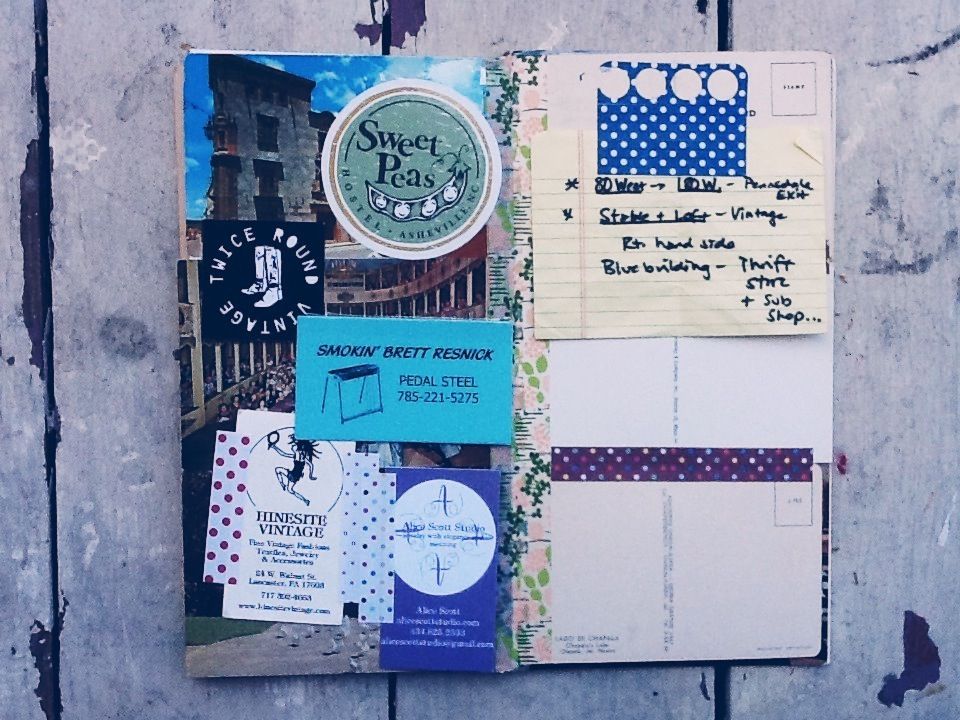 Sweet
Peas
HOSTEL • ASHEVILLE NC
TWICE ROUND
VINTAGE
SMOKIN' BRETT RESNICK
PEDAL STEEL
785-221-5275
HINESITE
VINTAGE
Fine Vintage Fashions
Textiles, Jewelry
& Accessories
24 W. Walnut St.
Lancaster, PA 17603
717
www.hinesitevintage.com
A
Alice Scott Studio
jewelry with elegance and
meaning
Alice Scott
alicescottstudio.com
alicescottstudio@gmail.com
STAMP
D
* 80 West → - Pennsdale
EXit
* Stable + Loft - Vintage
Rt. hand side
Blue building - Thrift
store
+ Sub
Shop...
LAGO DE CHAPALA